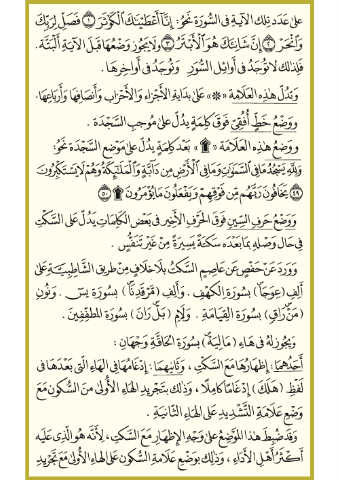 على عدد تلك الآية في السورة نحو: إِنَّا أَعْطَيْنَاكَ الْكَوْثَرَ ﴿١﴾ فَصَلِّ لِرَبِّكَ
وَانْحَرْ ﴿٢﴾ إِنَّ شَانِئَكَ هُوَ الْأَبْتَرُ ﴿٣﴾ ولا يجوز وضعها قبل الآية ألبتة .
فلذلك لا توجد في أوائل السُّوَر وتوجد في أواخرها .
وتدل هذه العلامة « ۞ » على بداية الأجزاء والأحزاب وأنصافها وأرباعها .
ووضع خط أفقي فوق كلمة يدل على موجب السجدة .
ووضع هذه العلامة « ۩ » بعد كلمة يدل على موضع السجدة نحو:
وَلِلَّهِ يَسْجُدُ مَا فِي السَّمَاوَاتِ وَمَا فِي الْأَرْضِ مِن دَابَّةٍ وَالْمَلَائِكَةُ وَهُمْ لَا يَسْتَكْبِرُونَ
﴿٤٩﴾ يَخَافُونَ رَبَّهُم مِّن فَوْقِهِمْ وَيَفْعَلُونَ مَا يُؤْمَرُونَ ۩ ﴿٥٠﴾
ووضع حرف السين فوق الحرف الأخير في بعض الكلمات يدل على السكت
في حال وصله بما بعده سكتة يسيرة من غير تنفس .
وورد عن حفص عن عاصم السكت بلا خلاف من طريق الشاطبية على
ألف (عِوَجَا) بسورة الكهف . وألف (مَّرْقَدِنَا) بسورة يس . ونون
(مَنْ رَاقٍ) بسورة القيامة . ولام (بَلْ رَانَ) بسورة المطففين .
ويجوز له في هاء (مَالِيَهْ) بسورة الحاقة وجهان:
أحدهما: إظهارها مع السكت ، وثانيهما: إدغامها في الهاء التي بعدها في
لفظ (هَلَكَ) إدغاما كاملا ، وذلك بتجريد الهاء الأولى من السكون مع
وضع علامة التشديد على الهاء الثانية .
وقد ضبط هذا الموضع على وجه الإظهار مع السكت ، لأنه هو الذي عليه
أكثر أهل الأداء ، وذلك بوضع علامة السكون على الهاء الأولى مع تجريد